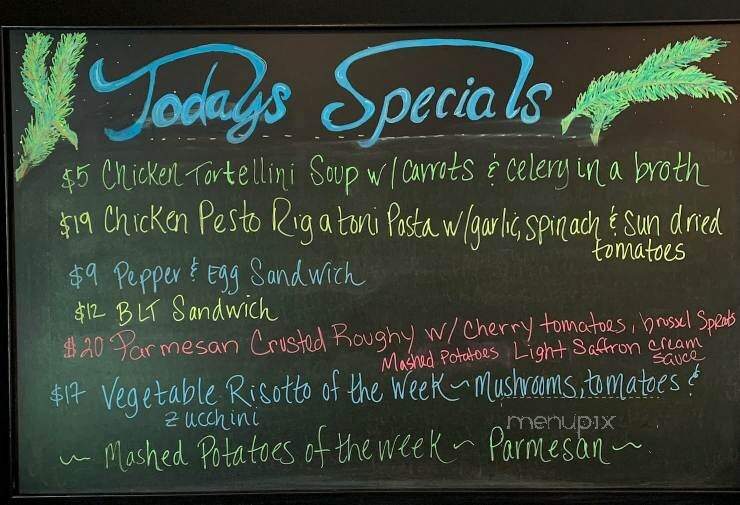 Todays Specials
$5 Chicken Tortellini Soup w/ Carrots & celery in a broth
$19 Chicken Pesto Rigatoni Pasta w/garlic, spinach & Sun dried
tomatoes
$9 Pepper & Egg Sandwich
$12 BLT Sandwich
$20 Parmesan Crusted Roughy w/ Cherry tomatoes, brussel Sprots
Mashed Potatoes Light Saffron cream
sauce
$17 Vegetable Risotto of the Week ~ Mushrooms, tomatoes &
zucchini
menupix
~ Mashed Potatoes of the week ~ Parmesan ~